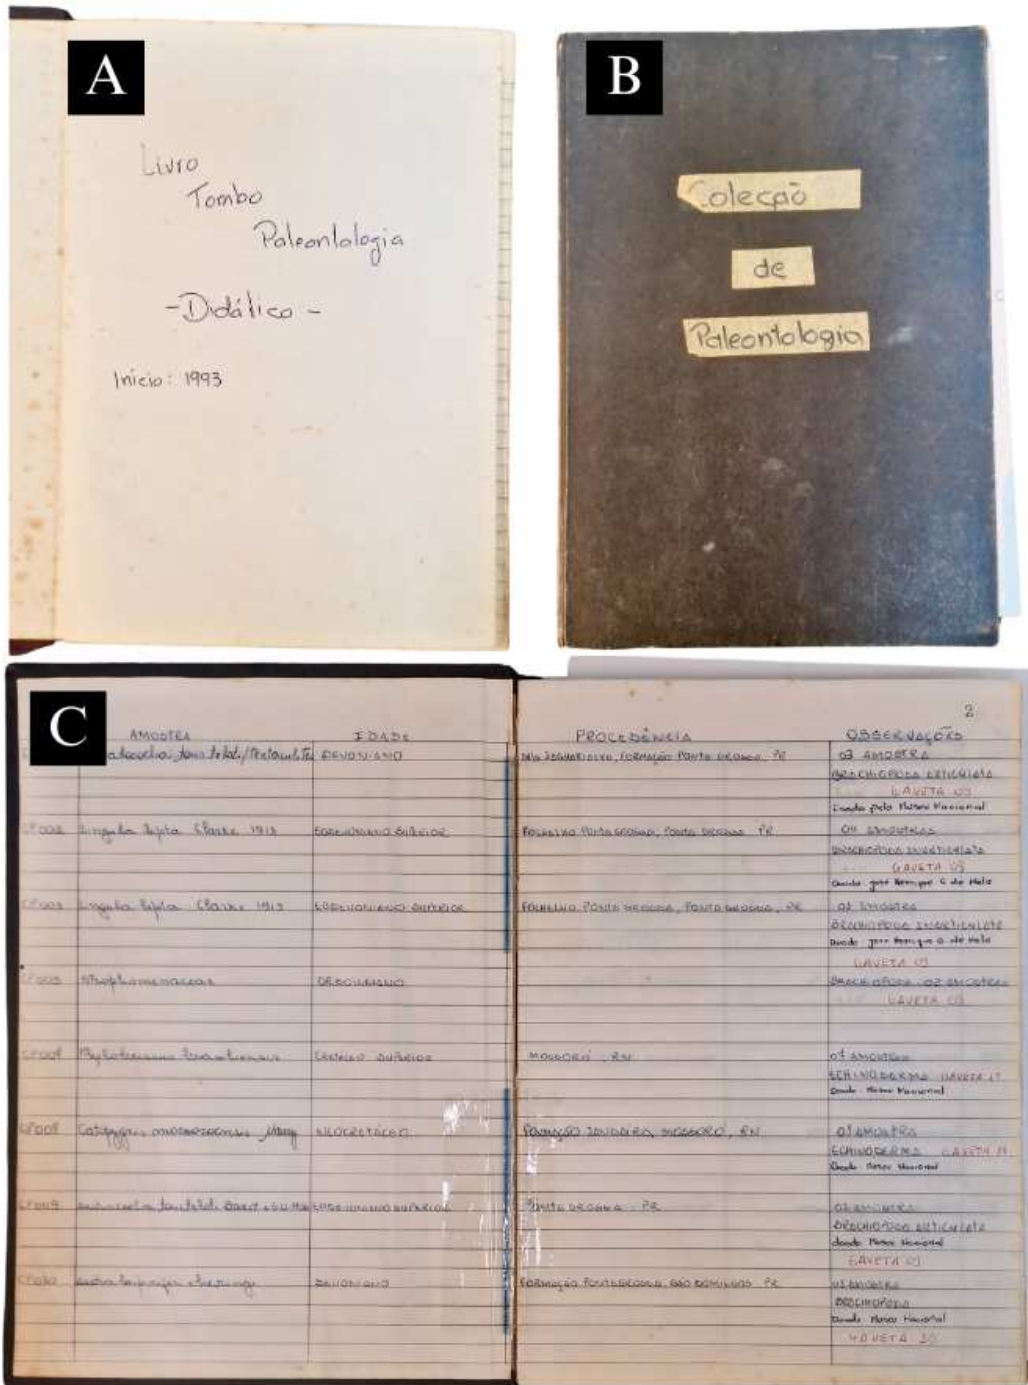 A
Livro
Tombo
Paleontologia
- Didático -
Início: 1993
B
Coleção
de
Paleontologia
C
2
AMOSTRA IDADE PROCEDÊNCIA OBSERVAÇÕES
DEVONIANO FORMAÇÃO PONTA GROSSA, PR 03 AMOSTRA
BRACHIOPODA ARTICULATA
GAVETA 09
Doado pelo Museu Nacional
CP002 Lingula lepta Clarke 1913 EODEVONIANO SUPERIOR FOLHELHO PONTA GROSSA, PONTA GROSSA PR AMOSTRAS
BRACHIOPODA INARTICULATA
GAVETA 09
Doado José Henrique G de Melo
CP003 Lingula lepta Clarke 1913 EODEVONIANO SUPERIOR FOLHELHO PONTA GROSSA, PONTA GROSSA, PR AMOSTRA
BRACHIOPODA INARTICULATA
Doado José Henrique G. de Melo
GAVETA 09
Strophomenaceas BRACHIOPODA 02 AMOSTRAS
GAVETA 09
CRETÁCEO SUPERIOR MOSSORÓ, RN AMOSTRA
ECHINODERMA GAVETA
Doado Museu Nacional
CP008 NEOCRETÁCEO FORMAÇÃO JANDAÍRA, MOSSORÓ, RN 01 AMOSTRA
ECHINODERMA GAVETA
Doado Museu Nacional
EODEVONIANO SUPERIOR PONTA GROSSA - PR AMOSTRA
BRACHIOPODA ARTICULATA
doado Museu Nacional
GAVETA 09
DEVONIANO FORMAÇÃO PONTA GROSSA, SÃO DOMINGOS PR AMOSTRA
BRACHIOPODA
Doado Museu Nacional
GAVETA